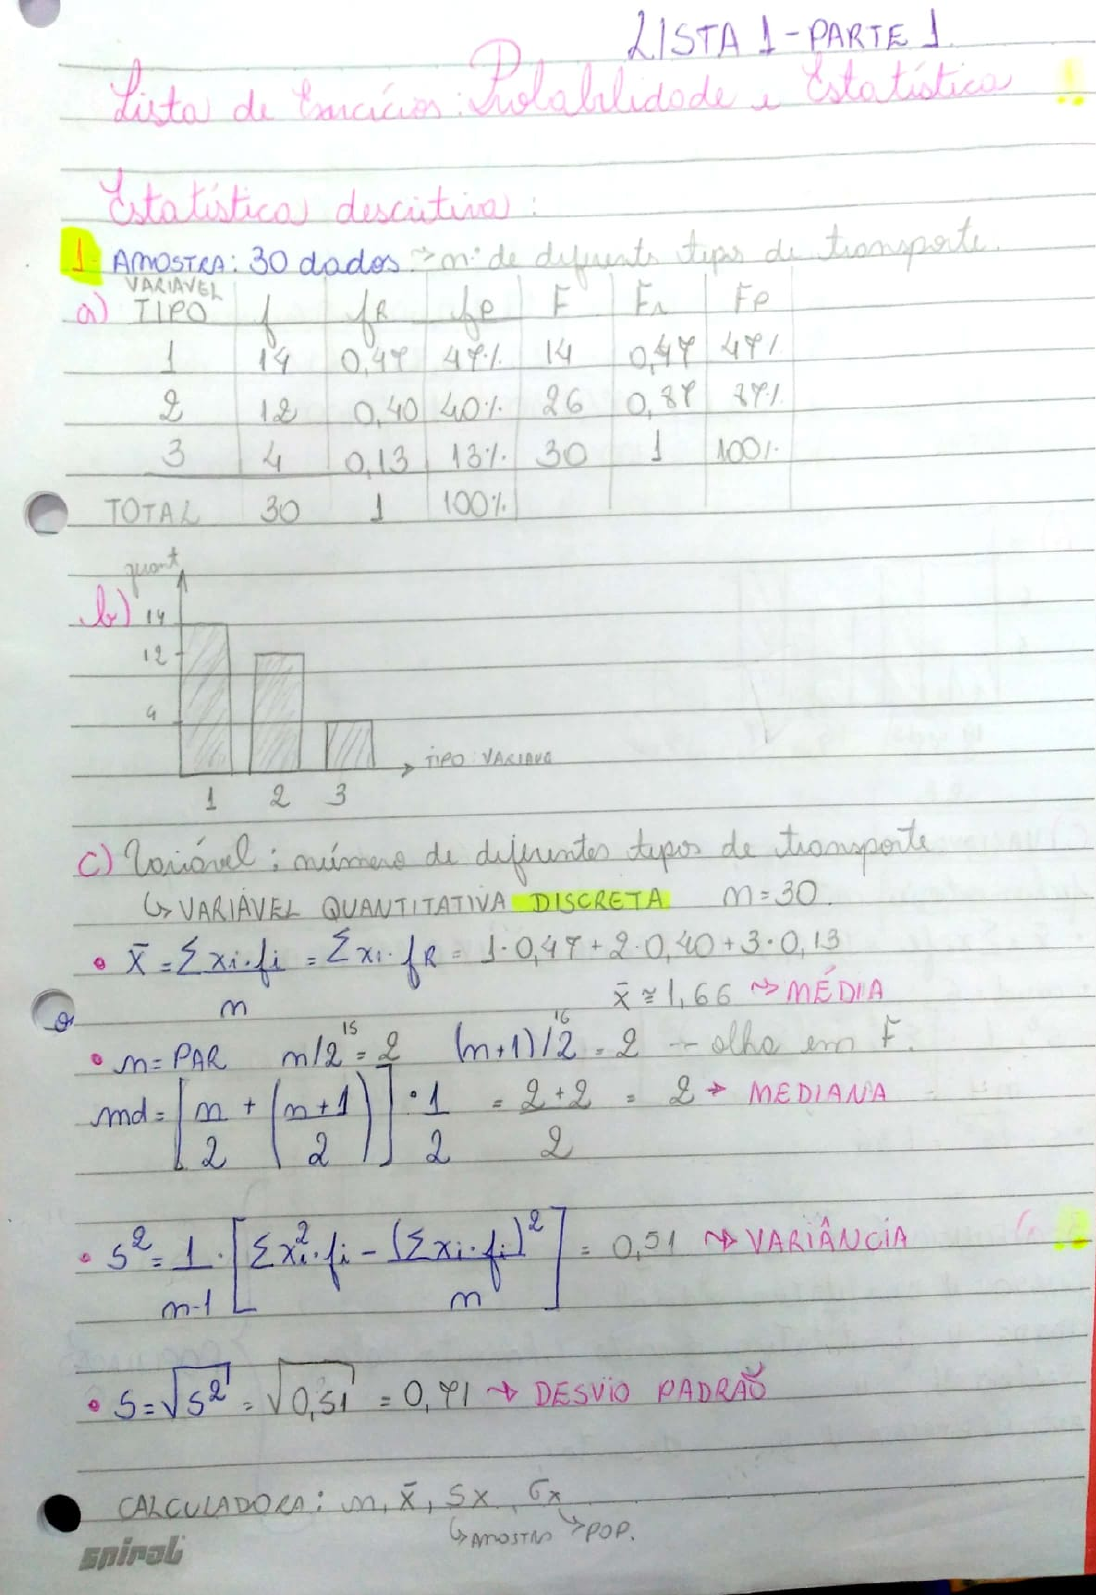 LISTA 1 - PARTE 1
Lista de Exercícios: Probabilidade e Estatística !!
Estatística descritiva:
1- AMOSTRA: 30 dados. → nº de diferente tipos de transporte.
a) VARIAVEL TIPO f fR fP F Fr FP
1 14 0,47 47% 14 0,47 47%
2 12 0,40 40% 26 0,87 87%
3 4 0,13 13% 30 1 100%
TOTAL 30 1 100%
quant
b) 14
12
4
→ TIPO VARIAVE
1 2 3
c) Variável: número de diferentes tipos de transporte
↳ VARIÁVEL QUANTITATIVA DISCRETA n=30.
• x̄ = Σxi.fi / n = Σxi.fR = 1.0,47 + 2.0,40 + 3.0,13
x̄ ≅ 1,66 → MÉDIA
• n = PAR n/2 15 = 2 (n+1)/2 16 = 2 - olha em F.
md = [n/2 + (n+1/2)] . 1/2 = 2+2/2 = 2 → MEDIANA
• s² = 1/n-1 . [Σxi².fi - (Σxi.fi)²/n] = 0,51 → VARIÂNCIA
• S = √s² = √0,51 = 0,71 → DESVIO PADRAÕ
CALCULADORA: n, x̄, Sx, σx
↳ AMOSTRA ↳ POP.
spiral